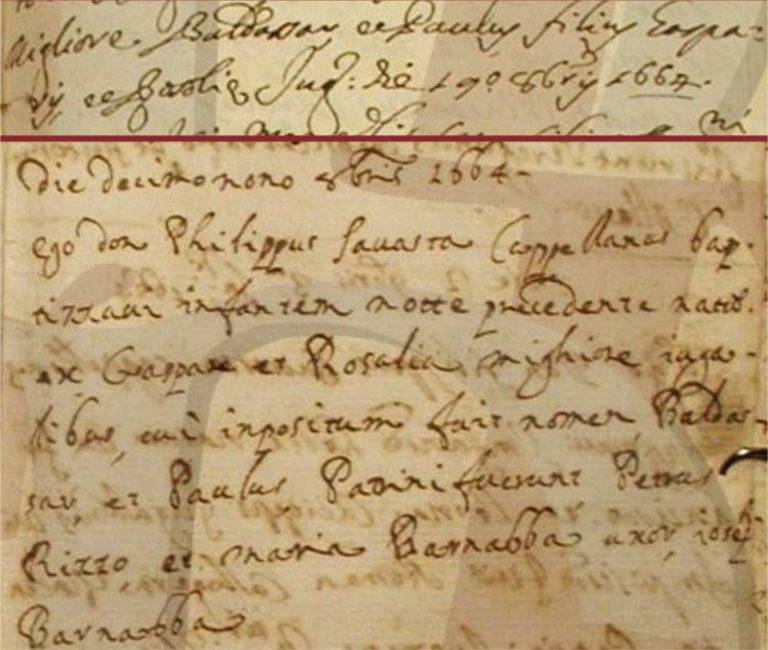 Migliore Baldassar et Paulus filius Gaspa=
rij et Jug: die 19º 8brij 1664.
Die decimo nono 8bris 1664 -
Ego Don Philippus Savasta Cappellanus bap-
tizzavi infantem notte precedente natu.
ex Gaspare et Rosalia Migliore iuga-
libus, cui inpositum fuit nomen Baldas-
sar, et Paulus Patrini fuerunt Petrus
Rizzo et Maria Barnabba uxor Josef
Barnabba